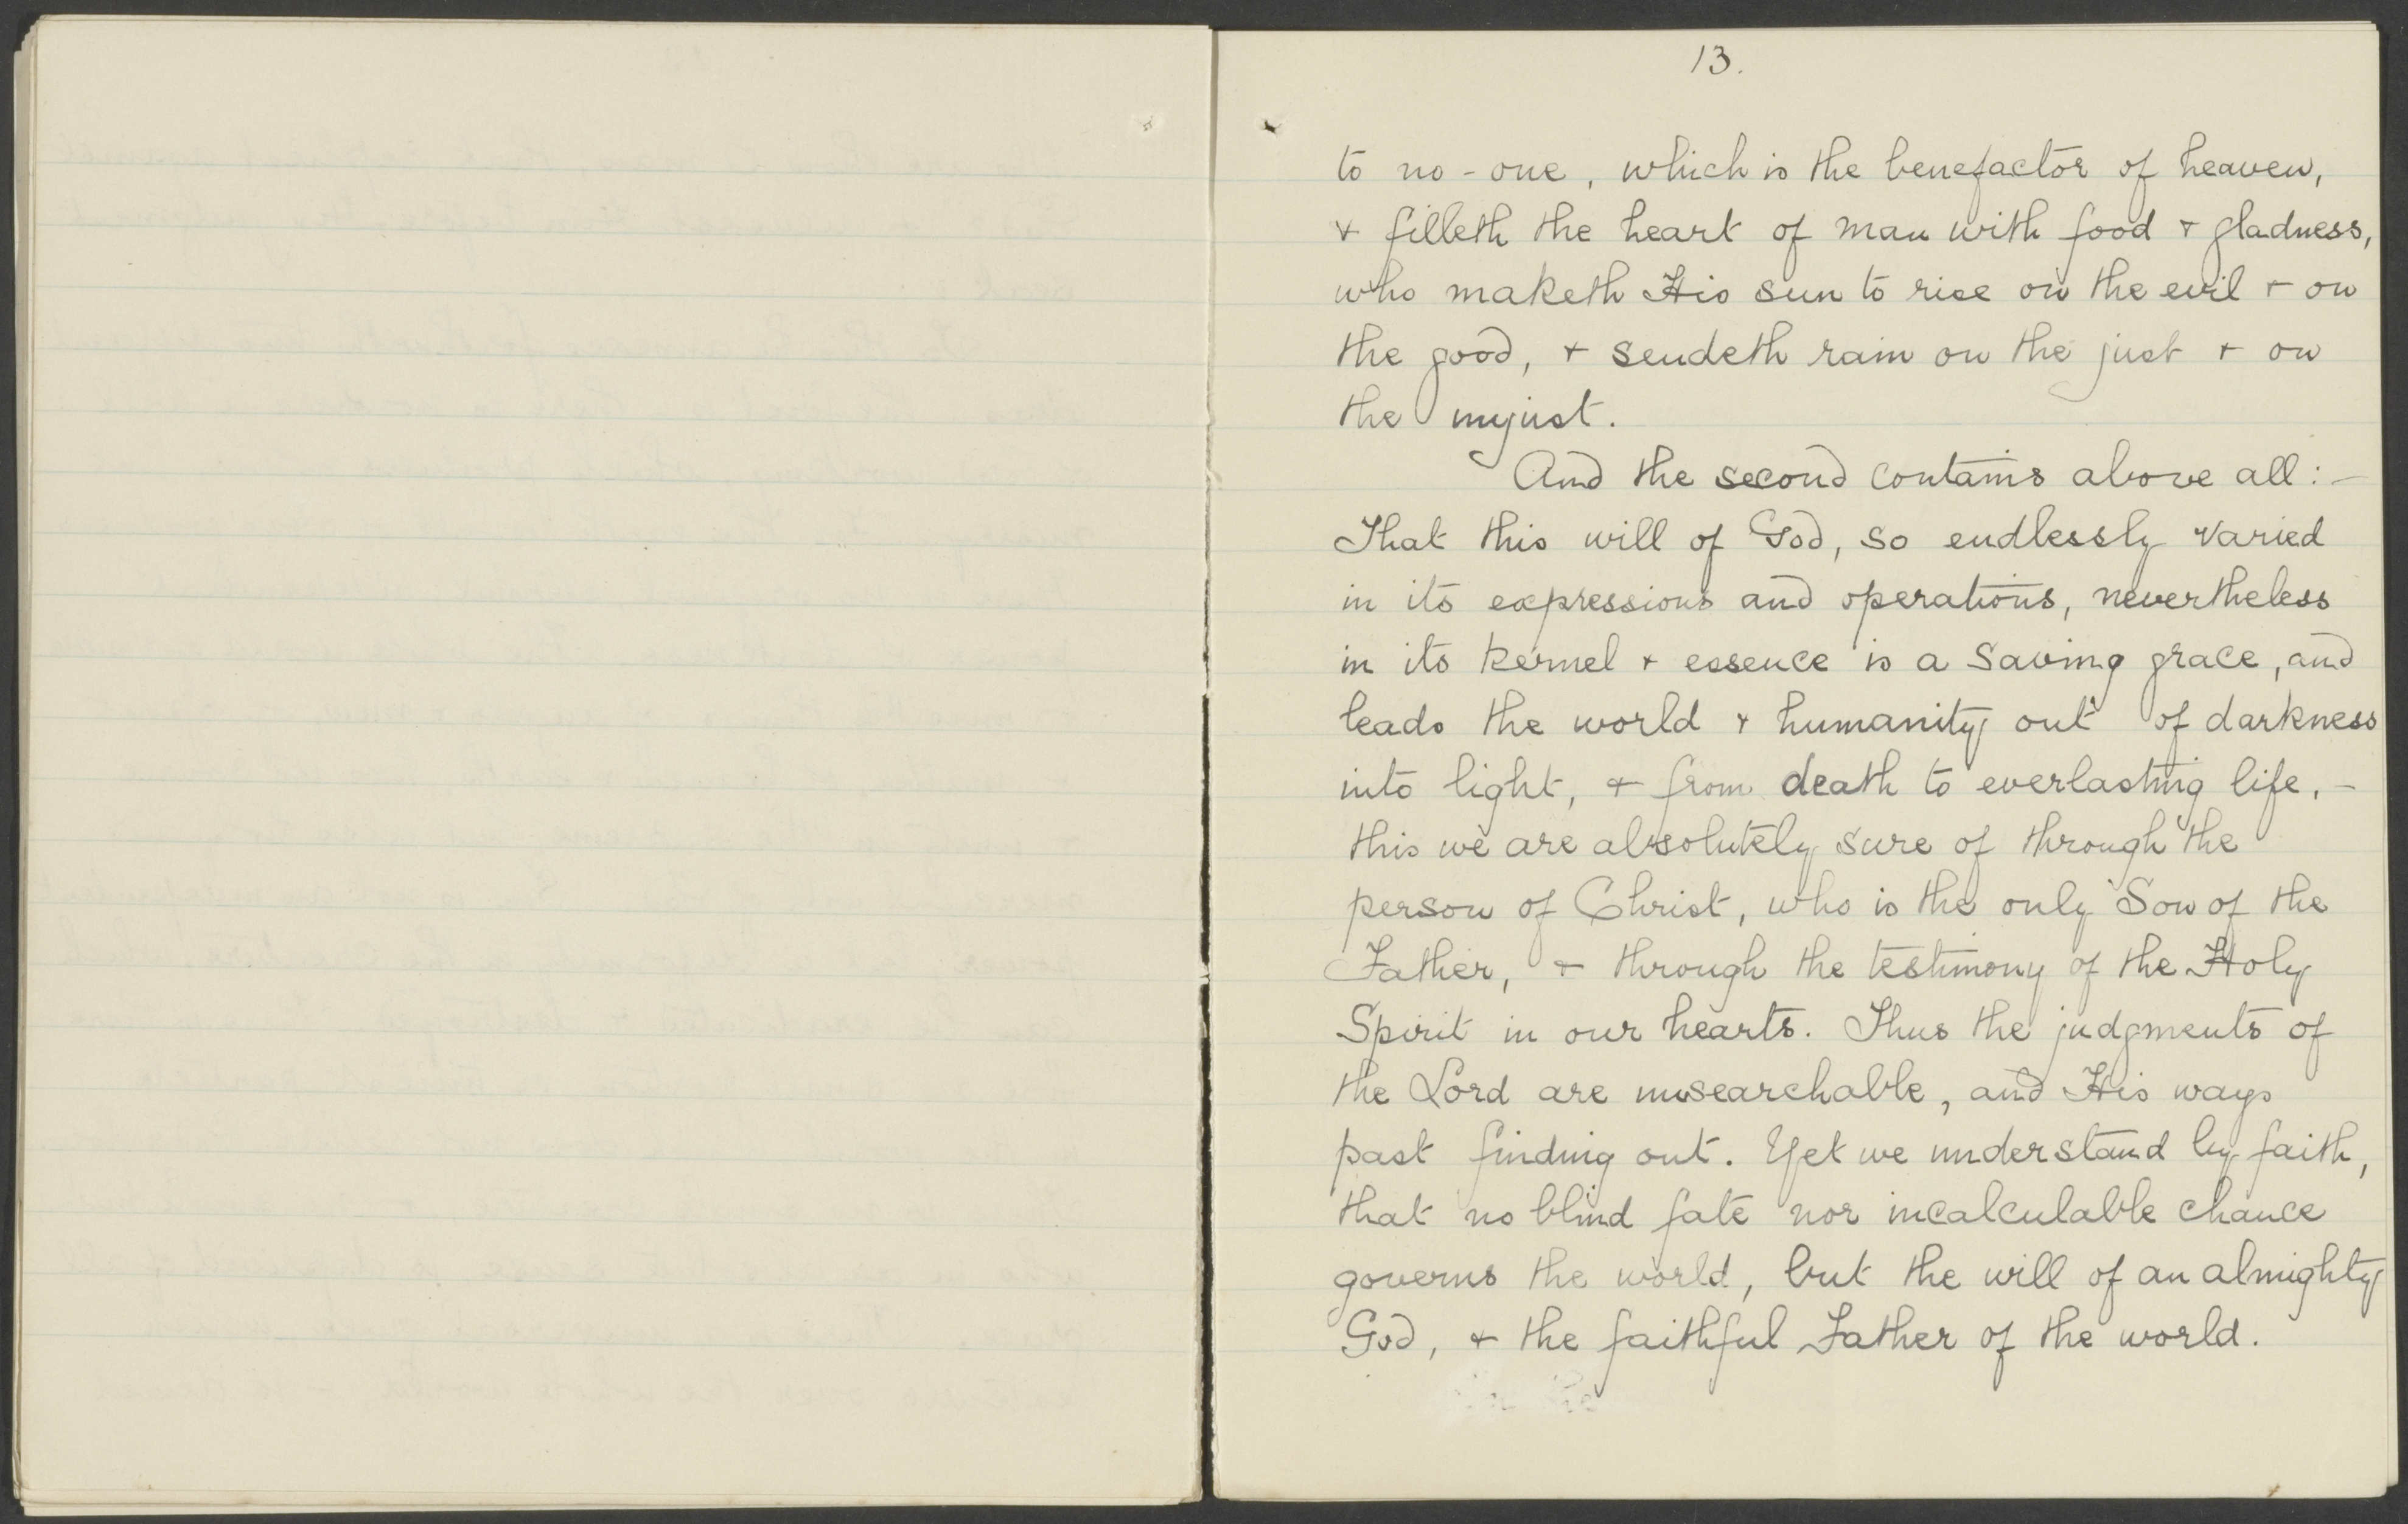 13.
to no-one, which is the benefactor of heaven,
& filleth the heart of man with food & gladness,
who maketh His sun to rise on the evil & on
the good, & sendeth rain on the just & on
the unjust.
And the second contains above all:-
That this will of God, so endlessly varied
in its expressions and operations, nevertheless
in its kernel & essence is a saving grace, and
leads the world & humanity out of darkness
into light, & from death to everlasting life, -
this we are absolutely sure of through the
person of Christ, who is the only Son of the
Father, & through the testimony of the Holy
Spirit in our hearts. Thus the judgments of
the Lord are unsearchable, and His ways
past finding out. Yet we understand by faith,
that no blind fate nor incalculable chance
governs the world, but the will of an almighty
God, & the faithful Father of the world.